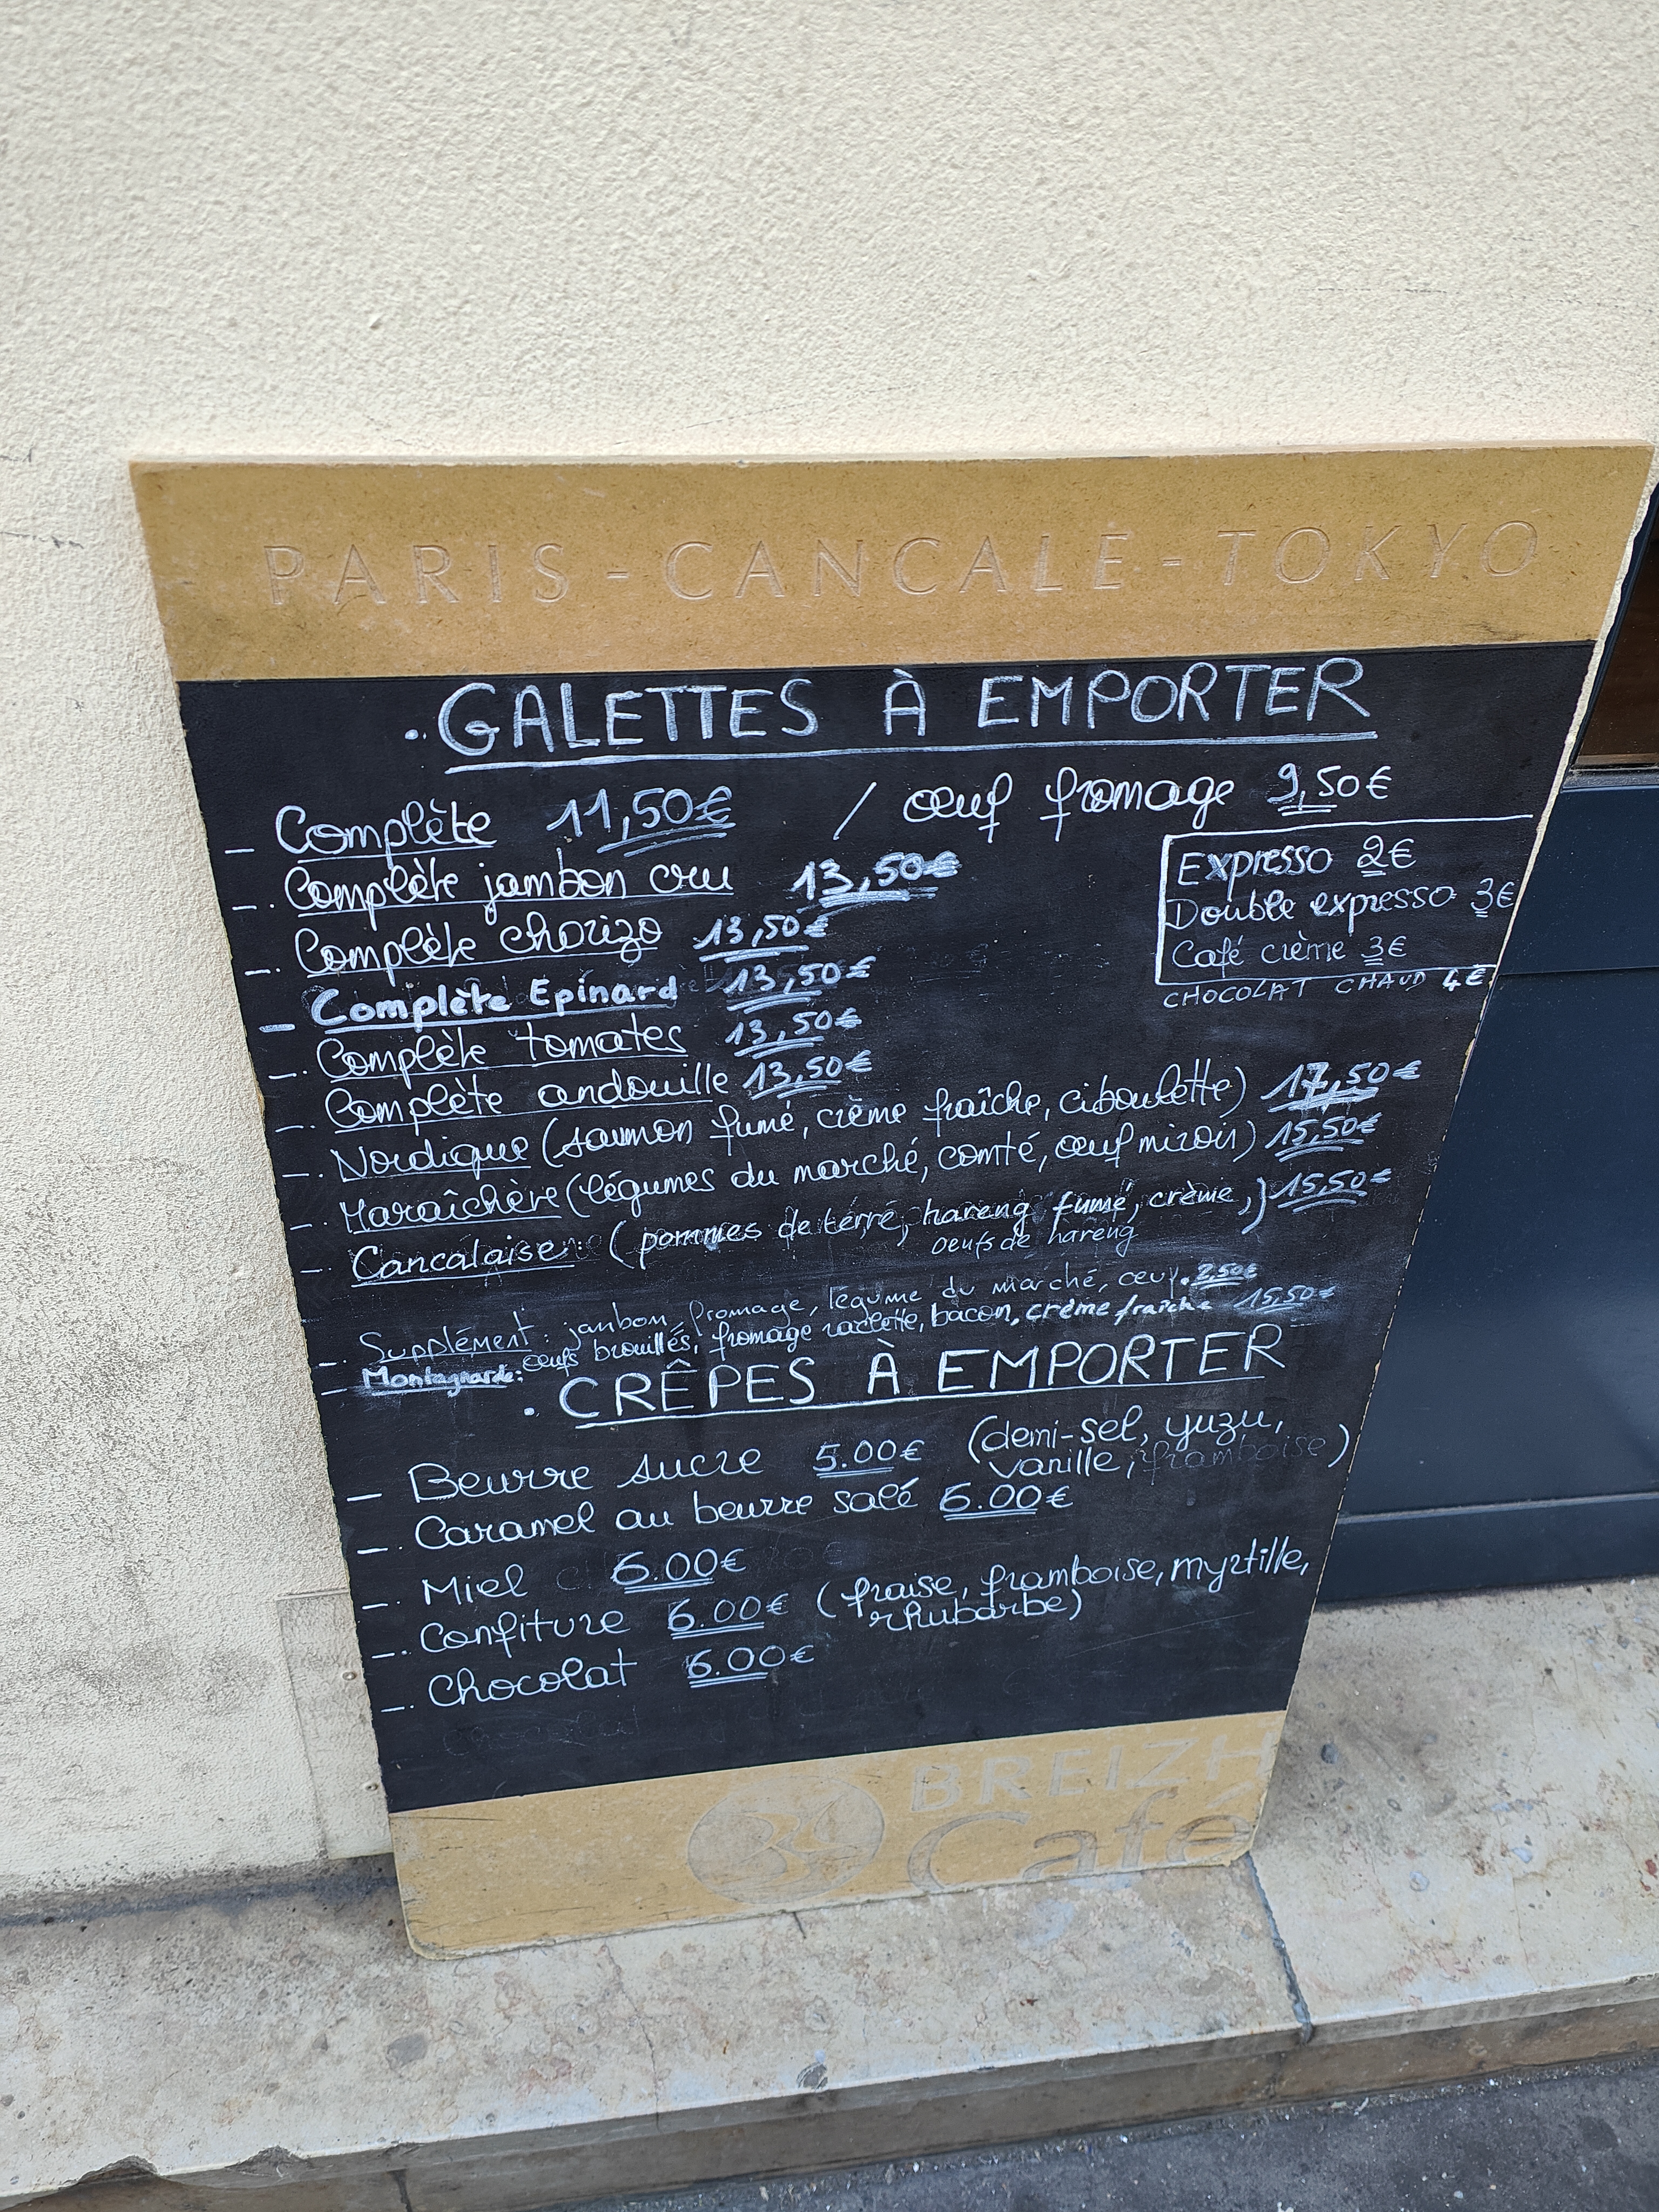 PARIS - CANCALE - TOKYO
. GALETTES À EMPORTER
_ Complète 11,50€ / œuf fromage 9,50€
_. Complète jambon cru 13,50€
_. Complète chorizo 13,50€
_ Complète Epinard 13,50€
_. Complète tomates 13,50€
_. Complète andouille 13,50€
_. Nordique (saumon fumé, crème fraîche, ciboulette) 17,50€
_. Maraîchère (légumes du marché, comté, œuf miroir) 15,50€
_. Cancalaise (pommes de terre, hareng fumé, crème,) 15,50€
oeufs de hareng
_. Supplément : jambon, fromage, légume du marché, œuf. 2,50€
_ Montagnarde: œufs brouillés, fromage raclette, bacon, crème fraîche 15,50€
Expresso 2€
Double expresso 3€
Café crème 3€
CHOCOLAT CHAUD 4€
. CRÊPES À EMPORTER
_ Beurre sucre 5.00€ (demi-sel, yuzu,
vanille, framboise)
_. Caramel au beurre salé 6.00€
_. Miel 6.00€
_. Confiture 6.00€ (fraise, framboise, myrtille,
rhubarbe)
_. Chocolat 6.00€
Chocolat
BREIZH
Café